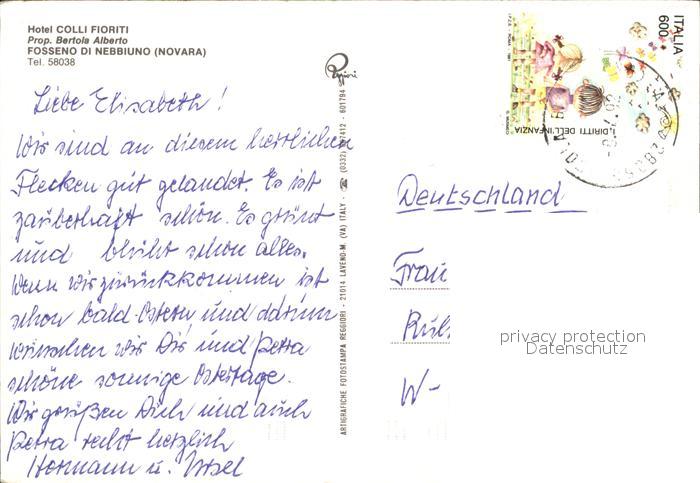 Hotel COLLI FIORITI
Prop. Bertola Alberto
FOSSENO DI NEBBIUNO (NOVARA)
Tel. 58038
Liebe Elisabeth!
Wir sind an diesem herrlichen
Flecken gut gelandet. Es ist
zauberhaft schön. Es grünt
und blüht schon alles.
Wenn wir zurückkommen ist
schon bald Ostern und darum
wünschen wir Dir und Petra
schöne sonnige Ostertage.
Wir grüßen Dich und auch
Petra recht herzlich
Hermann u. Ursel
ARTIGRAFICHE FOTOSTAMPA REGGIORI - 21014 LAVENO-M. (VA) ITALY - ☎ (0332) 667412 - 601794
ITALIA
600
I DIRITTI DELL'INFANZIA
I.P.Z.S. - ROMA - 1991
Deutschland
Frau
W-
privacy protection
Datenschutz